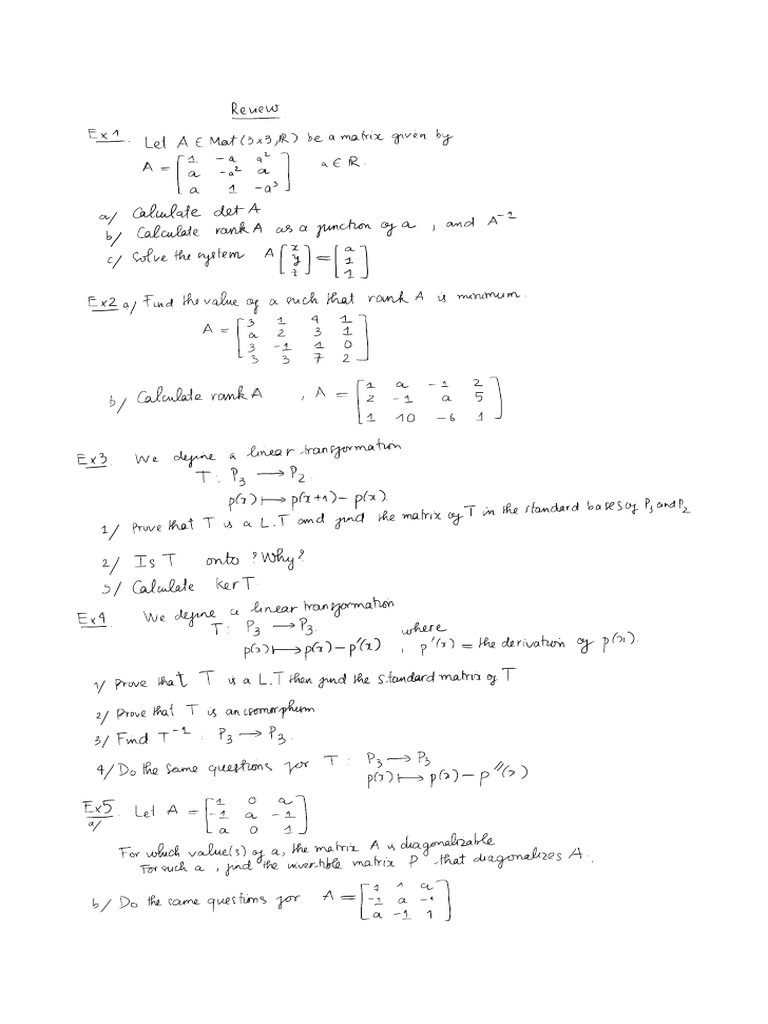 Review
Ex1. Let A ∈ Mat(3x3,ℝ) be a matrix given by
A = [1 -a a²; a -a² a; a 1 -a³] a ∈ ℝ.
a/ Calculate det A
b/ Calculate rank A as a function of a , and A⁻¹
c/ Solve the system A [x; y; z] = [a; 1; 1]
Ex2 a/ Find the value of a such that rank A is minimum.
A = [3 1 4 1; a 2 3 1; 3 -1 1 0; 3 3 7 2]
b/ Calculate rank A , A = [1 a -1 2; 2 -1 a 5; 1 10 -6 1]
Ex3. We define a linear transformation
T: P₃ → P₂.
p(x) ↦ p(x+1) - p(x)
1/ Prove that T is a L.T and find the matrix of T in the standard bases of P₃ and P₂
2/ Is T onto? Why?
3/ Calculate Ker T.
Ex4. We define a linear transformation
T: P₃ → P₃. where
p(x) ↦ p(x) - p'(x) , p'(x) = the derivation of p(x).
1/ Prove that T is a L.T then find the standard matrix of T
2/ Prove that T is an isomorphism
3/ Find T⁻¹ : P₃ → P₃.
4/ Do the same questions for T: P₃ → P₃
p(x) ↦ p(x) - p''(x)
Ex5. Let A = [1 0 a; -1 a -1; a 0 1]
a/
For which value(s) of a, the matrix A is diagonalizable
For such a , find the invertible matrix P that diagonalizes A.
b/ Do the same questions for A = [1 1 a; -1 a -1; a -1 1]